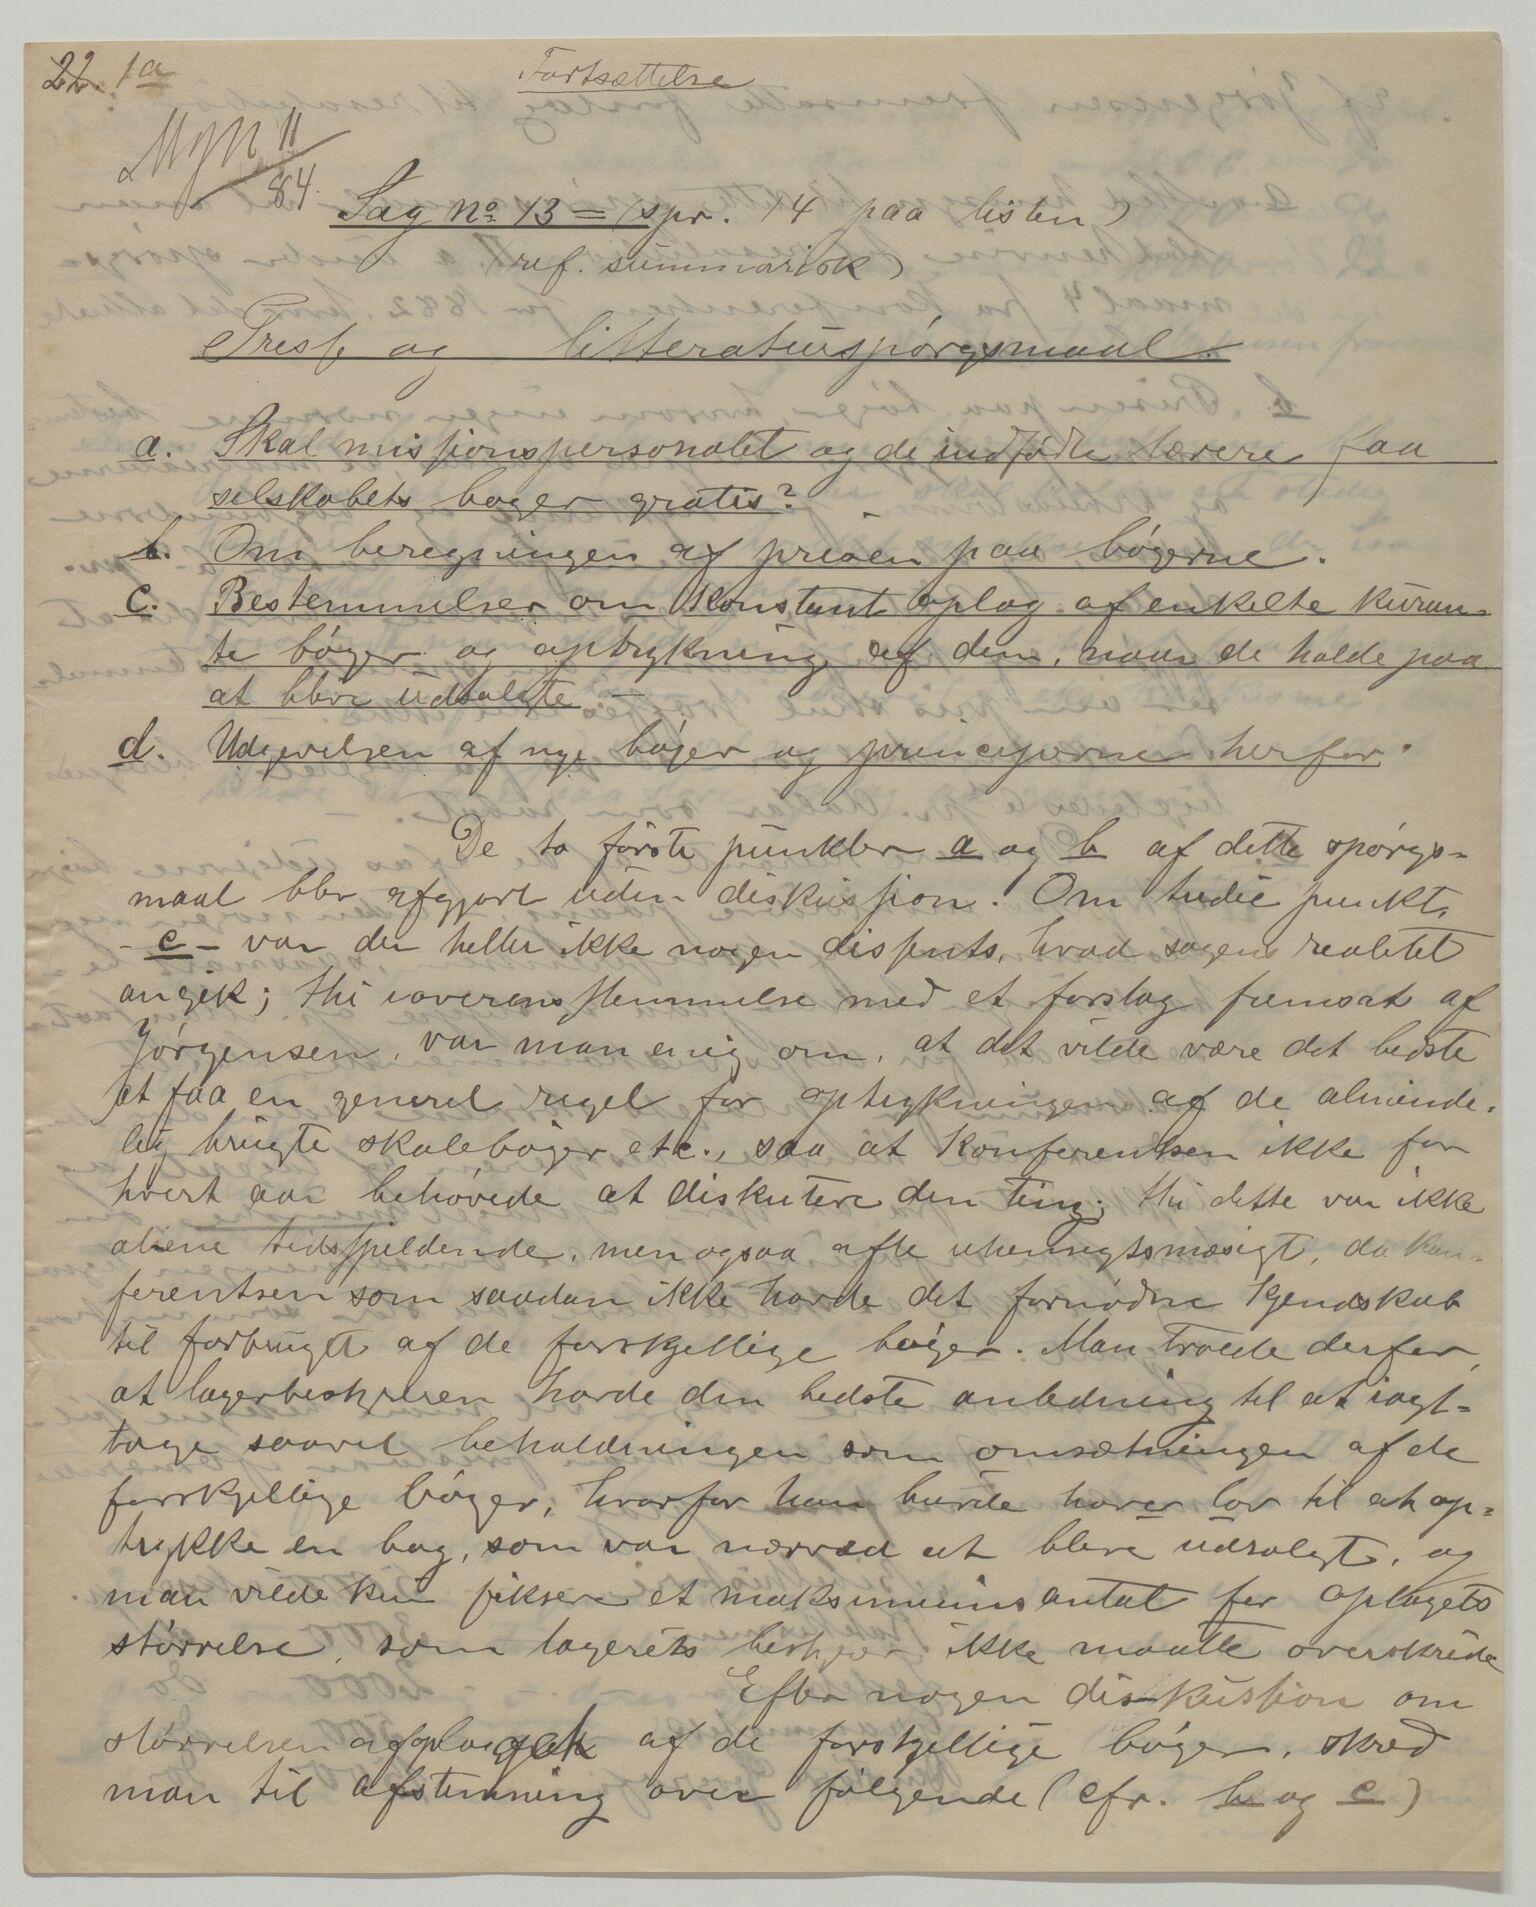 22. 1a
Fortsættelse
11/84.
Sag No 13 = (spr. 14 paa listen)
(ref. summarisk)
Presse og litteraturspørgsmaal.
a. Skal missionspersonalet og de indfødte lærere faa
selskabets bøger gratis?
b. Om beregningen af prisen paa bøgerne.
c. Bestemmelser om konstant oplag af enkelte kuran-
te bøger og optrykning af dem, naar de holde paa
at blive udsolgte –
d. Udgivelsen af nye bøger og principerne herfor.
De to første punkter a og b af dette spørgs-
maal blev afgjort uden diskussion. Om tredie punkt,
- c - var der heller ikke nogen disputs, hvad sagens realitet
angik; thi i overensstemmelse med et forslag fremsat af
Jørgensen, var man enig om, at det vilde være det bedste
at faa en generel regel for optrykningen af de alminde-
lig brugte skolebøger etc., saa at konferentsen ikke for
hvert aar behøvede at diskutere den ting; thi dette var ikke
alene tidsspildende, men ogsaa ofte uhensigtsmæsigt, da kon-
ferentsen som saadan ikke havde det fornødne kjendskab
til forbruget af de forskjellige bøger. Man troede derfor,
at lagerbestyreren havde den bedste anledning til at iagt-
tage saavel beholdningen som omsætningen af de
forskjellige bøger, hvorfor han burde have lov til at op-
trykke en bog, som var nærved at blive udsolgt, og
man vilde kun fiksere et maksimumsantal for oplagets
størrelse, som lagerets bestyrer ikke maatte overskride
Efter nogen diskussion om
størrelsen af oplaget af de forskjellige bøger, skred
man til afstemning over følgende (cfr. b og c)